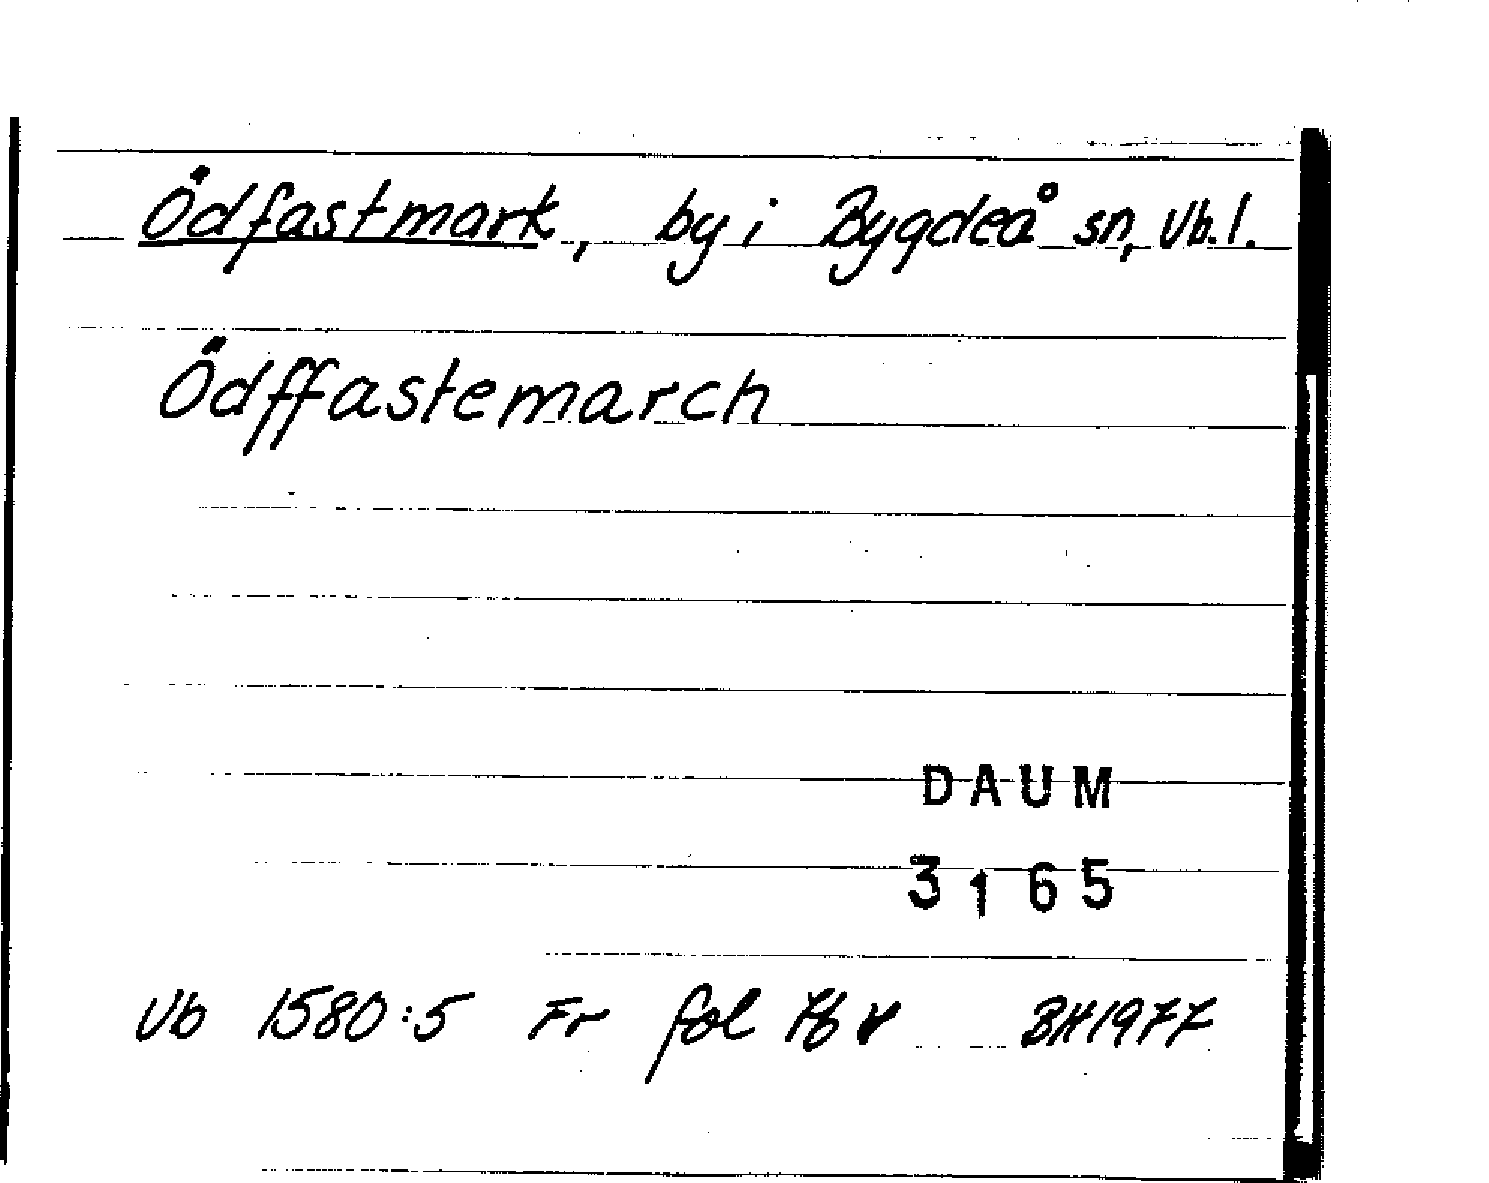 Ödfastmark, by i Bygdeå sn, Vb.l.
Ödffastemarch
DAUM
3165
Vb 1580:5 Fr fol v BH1977